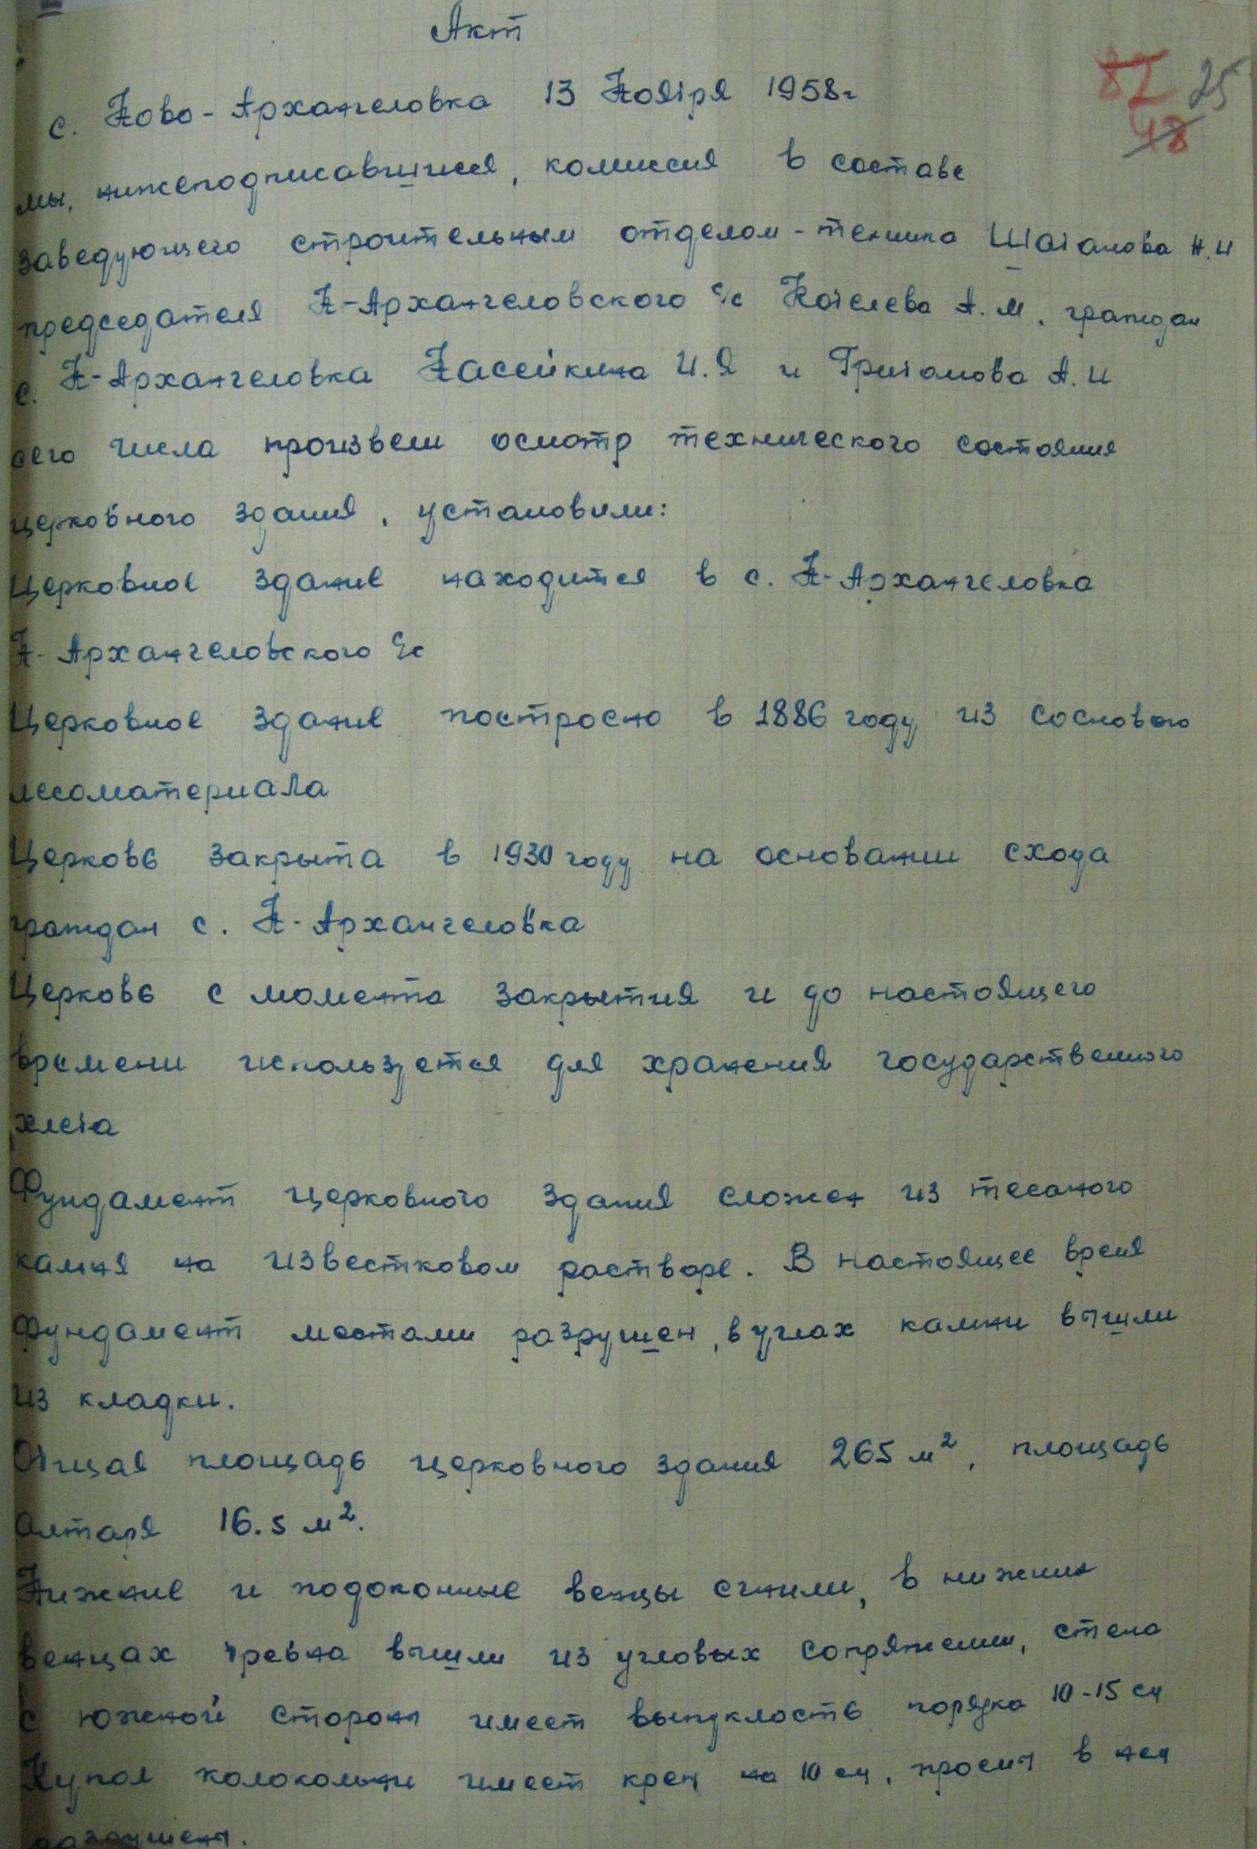 Акт
82 25
48
с. Ново-Архангеловка 13 Ноября 1958г
мы, нижеподписавшиеся, комиссия в составе
заведующего строительным отделом-техника Шабанова Н.И
председателя Н-Архангеловского с/с Кобелева А.М. граждан
с. Н-Архангеловка Касейкина И.Я и Грибанова А.И
сего числа произвели осмотр технического состояния
церковного здания, установили:
Церковное здание находится в с. Н-Архангеловка
Н-Архангеловского с/с
Церковное здание построено в 1886 году из соснового
лесоматериала
Церковь закрыта в 1930 году на основании схода
граждан с. Н-Архангеловка
Церковь с момента закрытия и до настоящего
времени используется для хранения государственного
хлеба
Фундамент церковного здания сложен из тесаного
камня на известковом растворе. В настоящее время
фундамент местами разрушен, в углах камни вышли
из кладки.
Общая площадь церковного здания 265 м², площадь
алтаря 16.5 м².
Нижние и подоконные венцы сгнили, в нижних
венцах бревна вышли из угловых сопряжении, стена
с южной стороны имеет выпуклость порядка 10-15 см
Купол колокольни имеет крен на 10 см, в нем
разрушен.